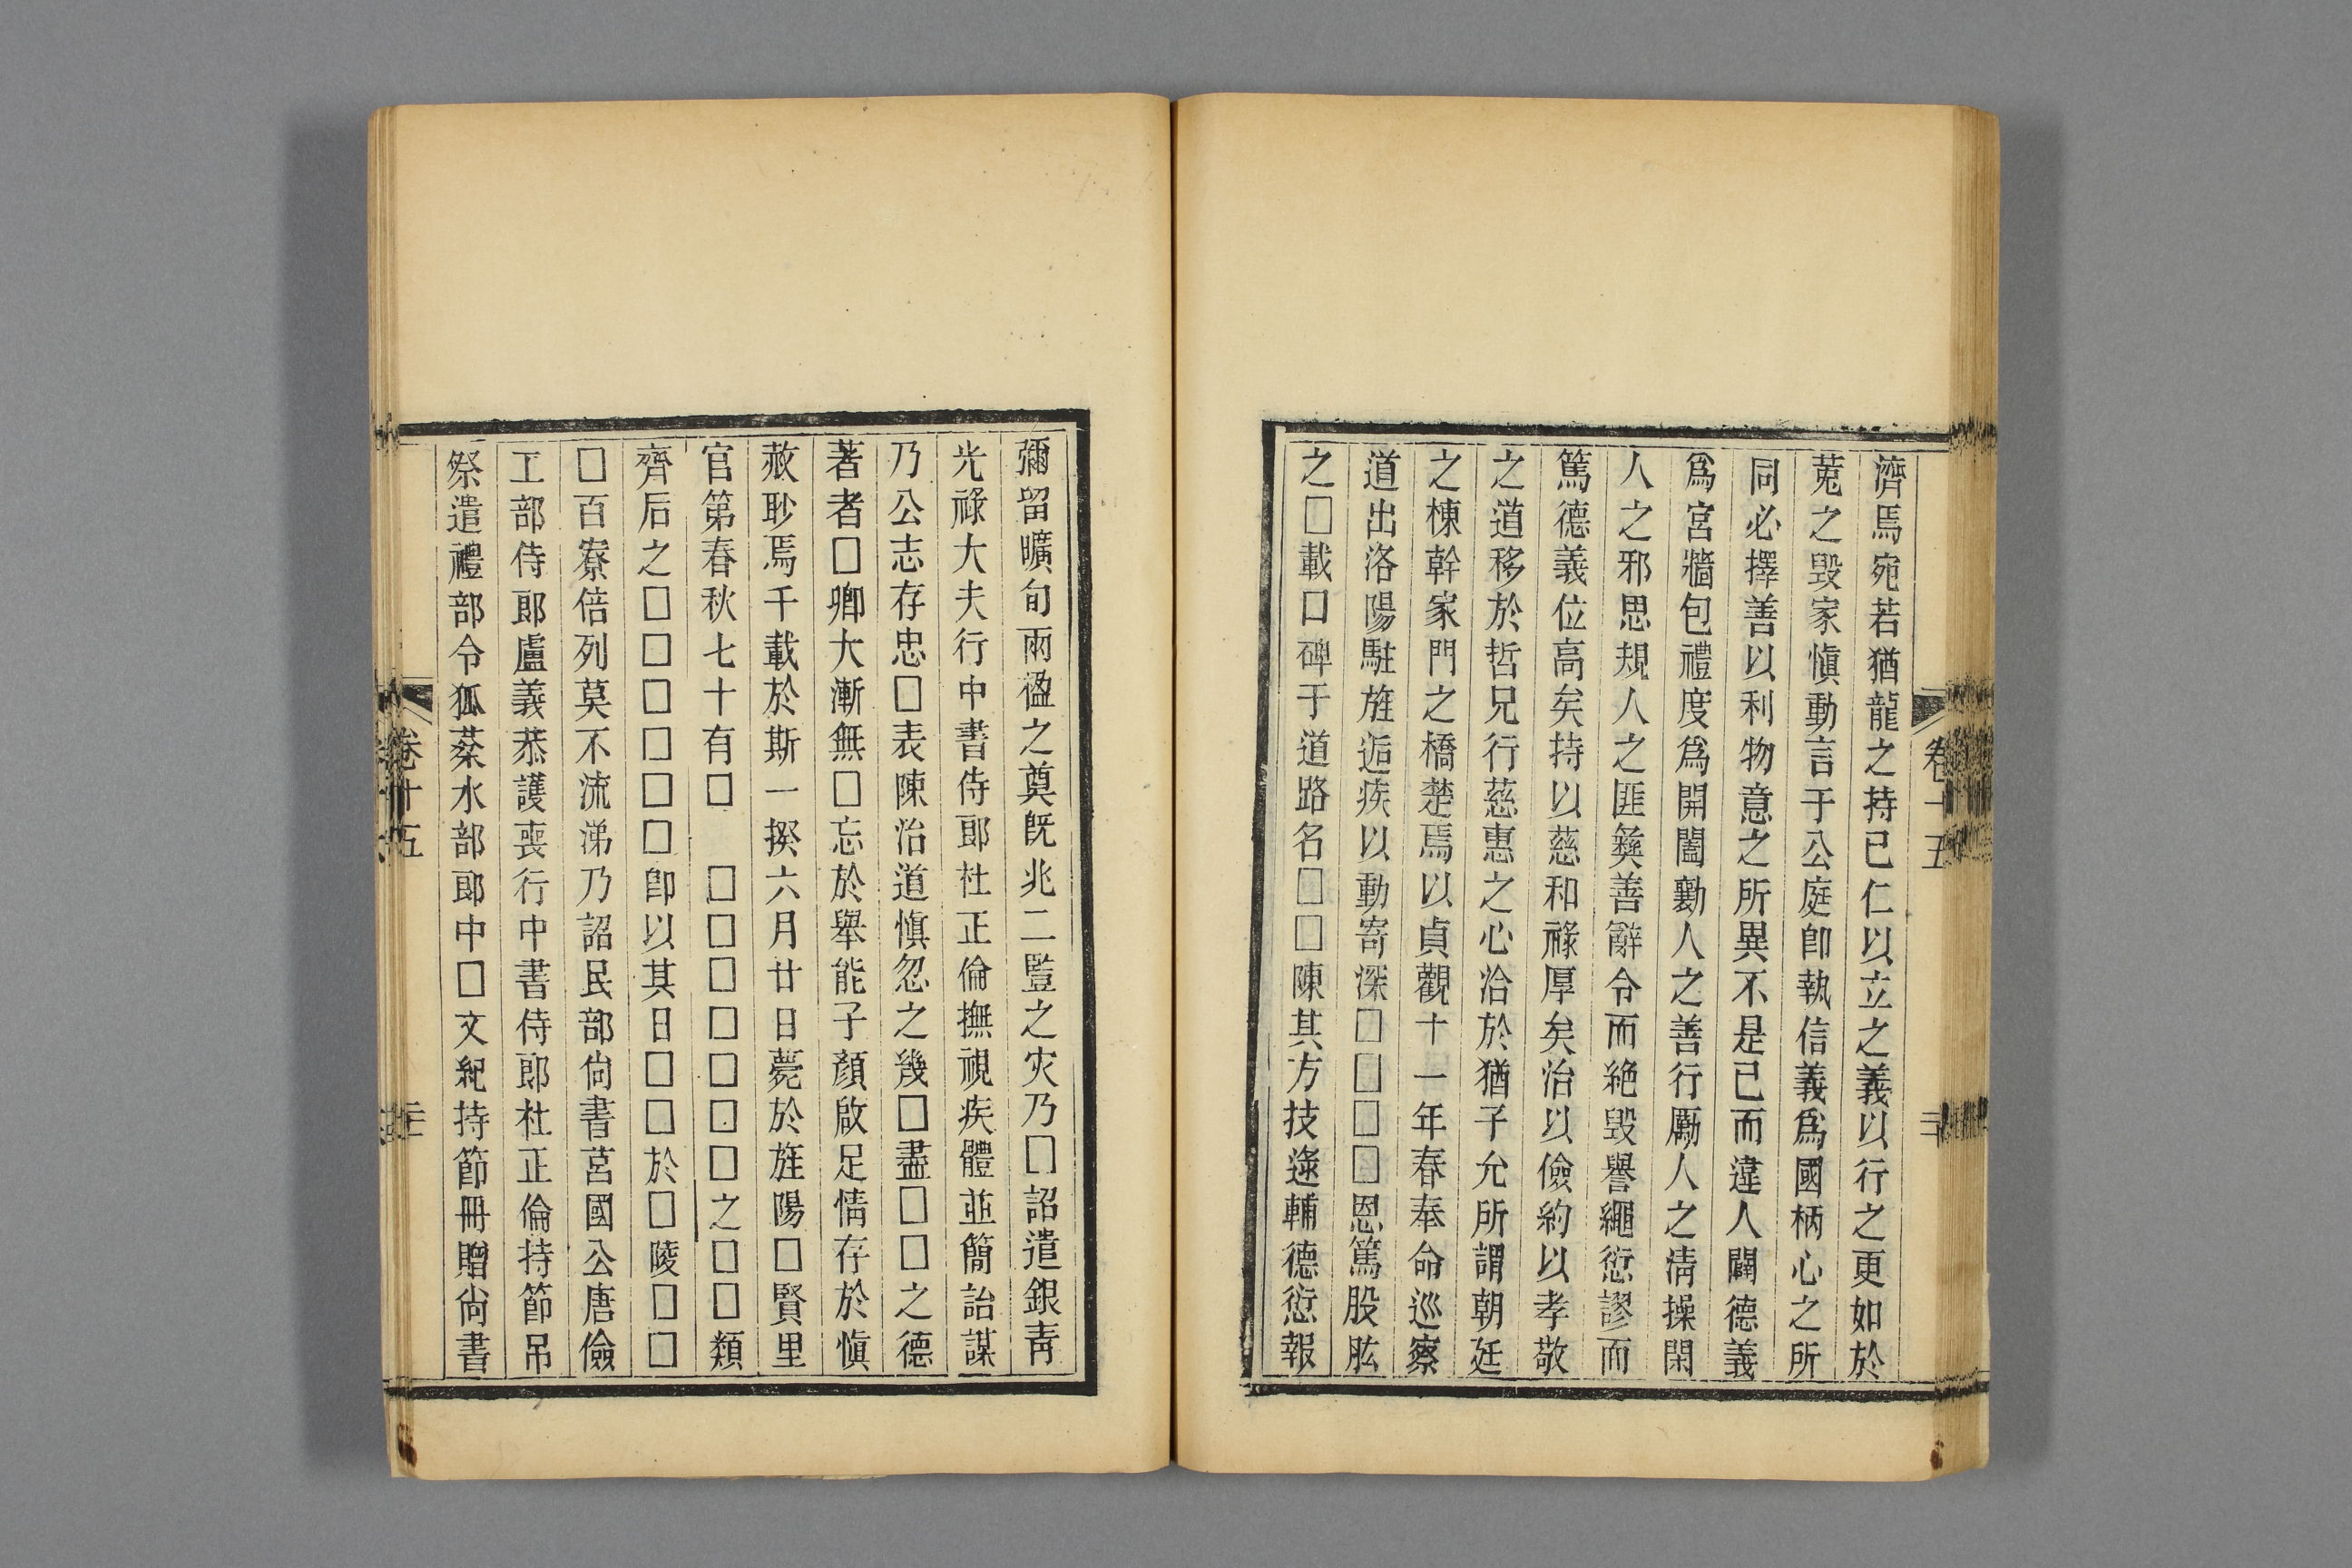 濟焉宛若猶龍之持已仁以立之義以行之更如於
蒬之毀家愼動言于公庭卽執信義爲國柄心之所
同必擇善以利物意之所異不是已而違人闢德義
爲宮牆包禮度爲開闔勷人之善行勵人之淸操閑
人之邪思規人之匪彝善辭令而絶毀譽繩愆謬而
篤德義位高矣持以慈和祿厚矣治以儉約以孝敬
之道移於哲兄行慈惠之心洽於猶子允所謂朝廷
之棟幹家門之橋楚焉以貞觀十一年春奉命巡察
道出洛陽駐旌逅疾以動寄深□□□□恩篤股肱
之□載口碑于道路名□□陳其方技逶輔德愆報
卷十五
彌留曠旬雨楹之奠旣兆二豎之灾乃□詔遣銀靑
光祿大夫行中書侍郞杜正倫撫視疾體並簡詒謀
乃公志存忠□表陳治道愼忽之幾□盡□□之德
著者□卿大漸無□忘於舉能子顏啟足情存於愼
赦眇焉千載於斯一揆六月廿日薨於旌陽□賢里
官第春秋七十有□　□□□□□□□之□□類
齊后之□□□□□□卽以其日□□於□陵□□
□百寮倍列莫不流涕乃詔民部尙書莒國公唐儉
工部侍郞盧義恭護喪行中書侍郞杜正倫持節吊
祭遣禮部令狐棻水部郞中□文紀持節冊贈尙書
卷十五